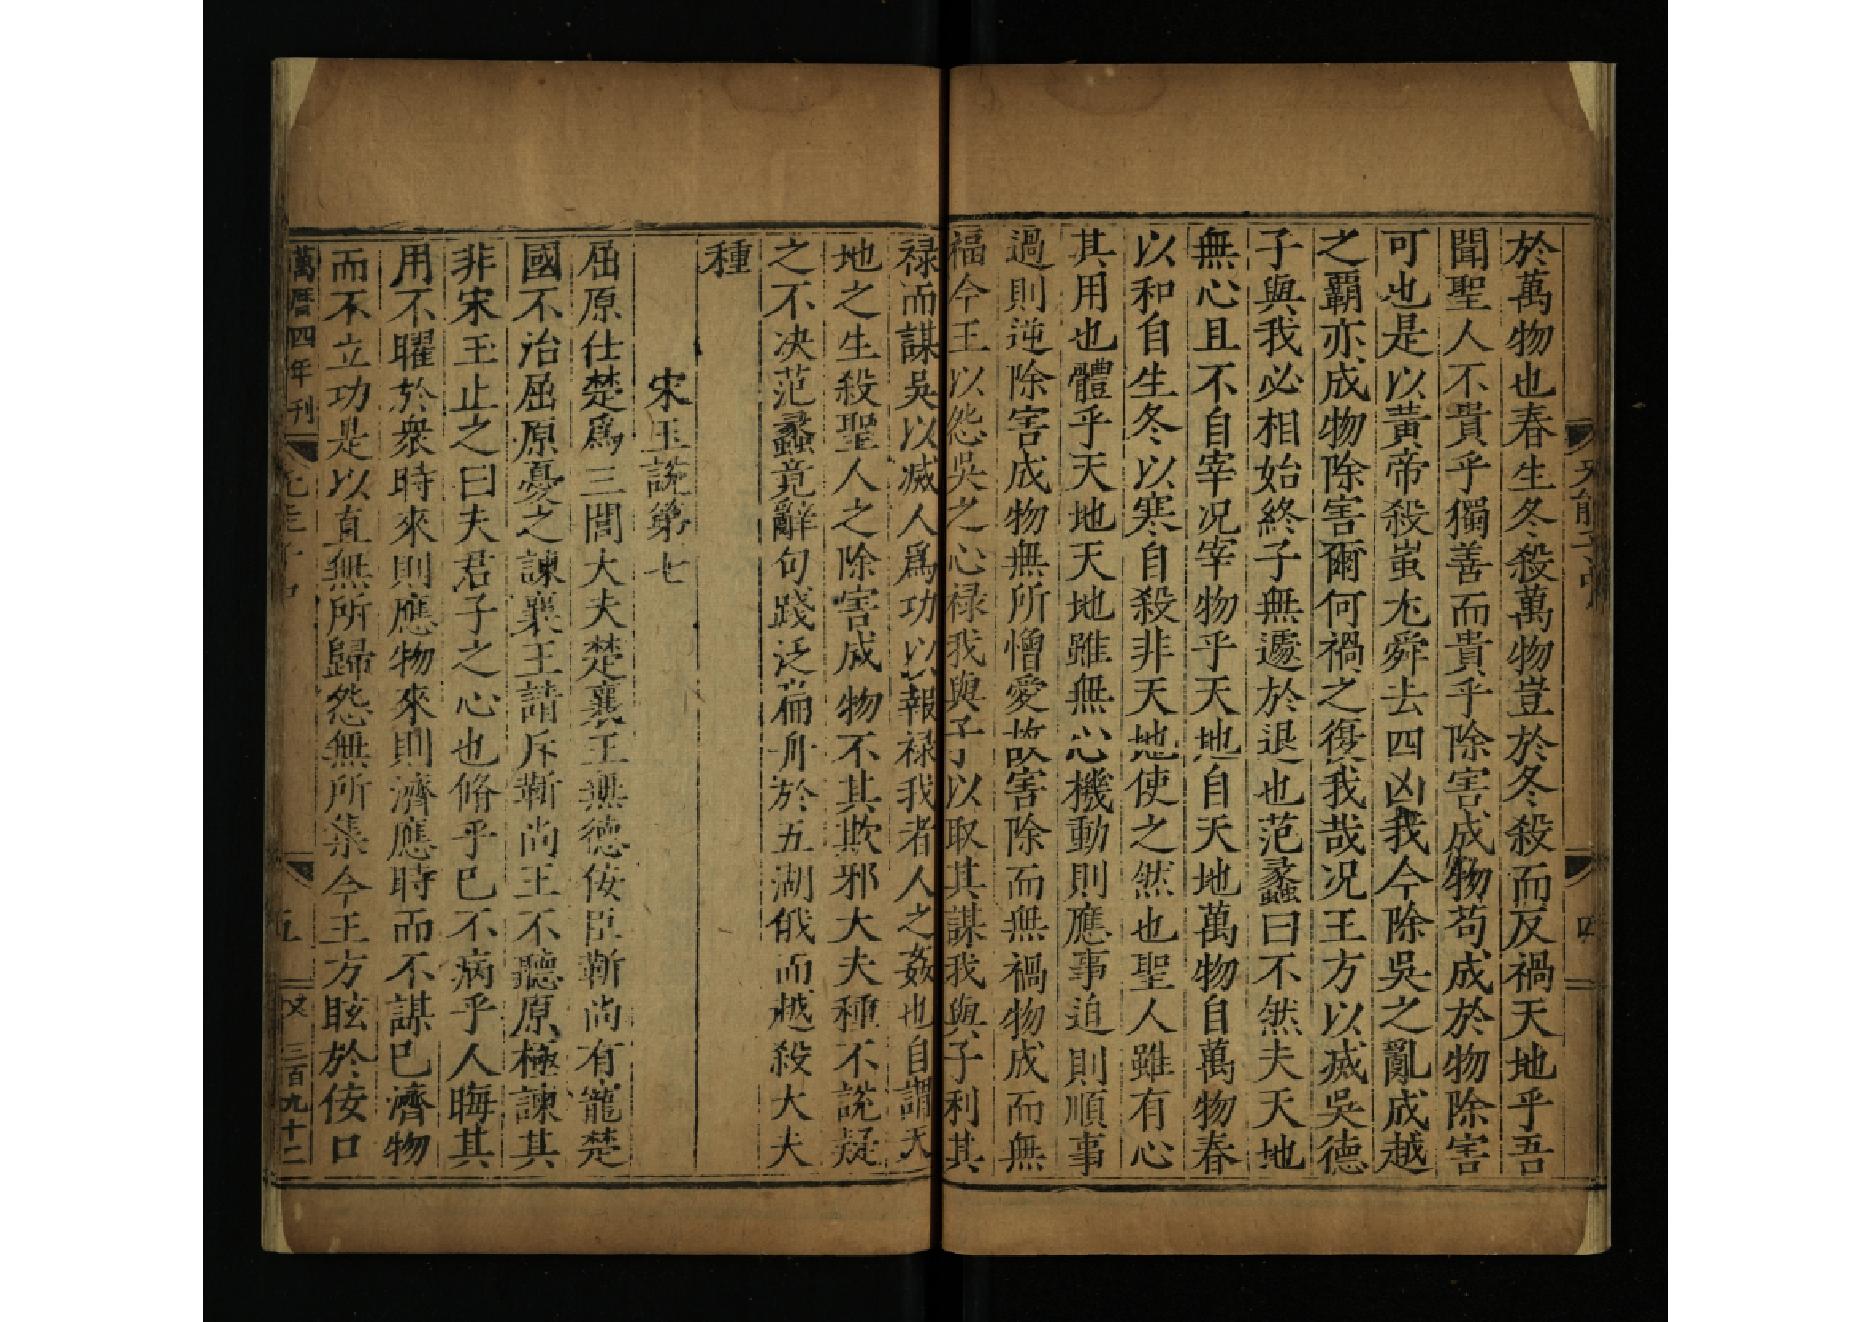 於萬物也春生冬殺萬物豈於冬殺而反禍天地乎吾
聞聖人不貴乎獨善而貴乎除害成物苟成於物除害
可也是以黃帝殺蚩尤舜去四凶我今除吳之亂成越
之霸亦成物除害爾何禍之復我哉况王方以滅吳德
子與我必相始終子無遽於退也范蠡曰不然夫天地
無心且不自宰况宰物乎天地自天地萬物自萬物春
以和自生冬以寒自殺非天地使之然也聖人雖有心
其用也體乎天地天地雖無心機動則應事迫則順事
過則逆除害成物無所憎愛故害除而無禍物成而無
福今王以怨吳之心祿我與子以取其謀我與子利其
祿而謀吳以滅人爲功以報祿我者人之姦也自謂天
地之生殺聖人之除害成物不其欺邪大夫種不說疑
之不决范蠡竟辭句踐泛萹舟於五湖俄而越殺大夫
種
宋玉說第七
屈原仕楚爲三閭大夫楚襄王無德佞臣靳尚有寵楚
國不治屈原憂之諫襄王請斥靳尚王不聽原極諫其
非宋玉止之曰夫君子之心也脩乎已不病乎人晦其
用不曜於衆時來則應物來則濟應時而不謀已濟物
而不立功是以直無所歸怨無所集今王方眩於佞口
萬曆四年刊
五
三百九十二